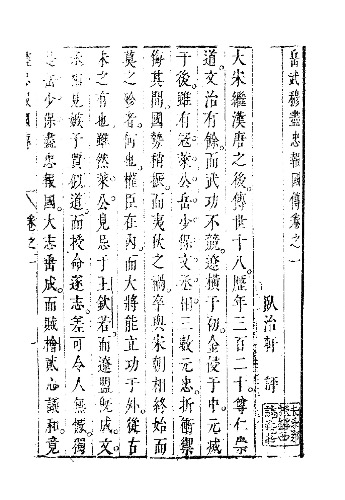 岳武穆盡忠報國傳卷之一
臥治軒 評
大宋繼漢唐之後傳世十八歷年三百二十尊仁崇
道文治有餘而武功不競遼橫于初金侵于中元滅
于後雖有寇萊公岳少保文丞相二數元忠折衝禦
侮其間國勢稍振而夷狄之禍卒與宋朝相終始而
莫之矜者何也權臣在內而大將能立功于外從古
未之有也雖然萊公見忌于王欽若而遼盟既成文
丞相見嫉于賈似道而授命遂志差可令人無憾獨
岳少保盡忠報國大志垂成而賊檜貳心議和竟
盡忠報國傳 卷之一